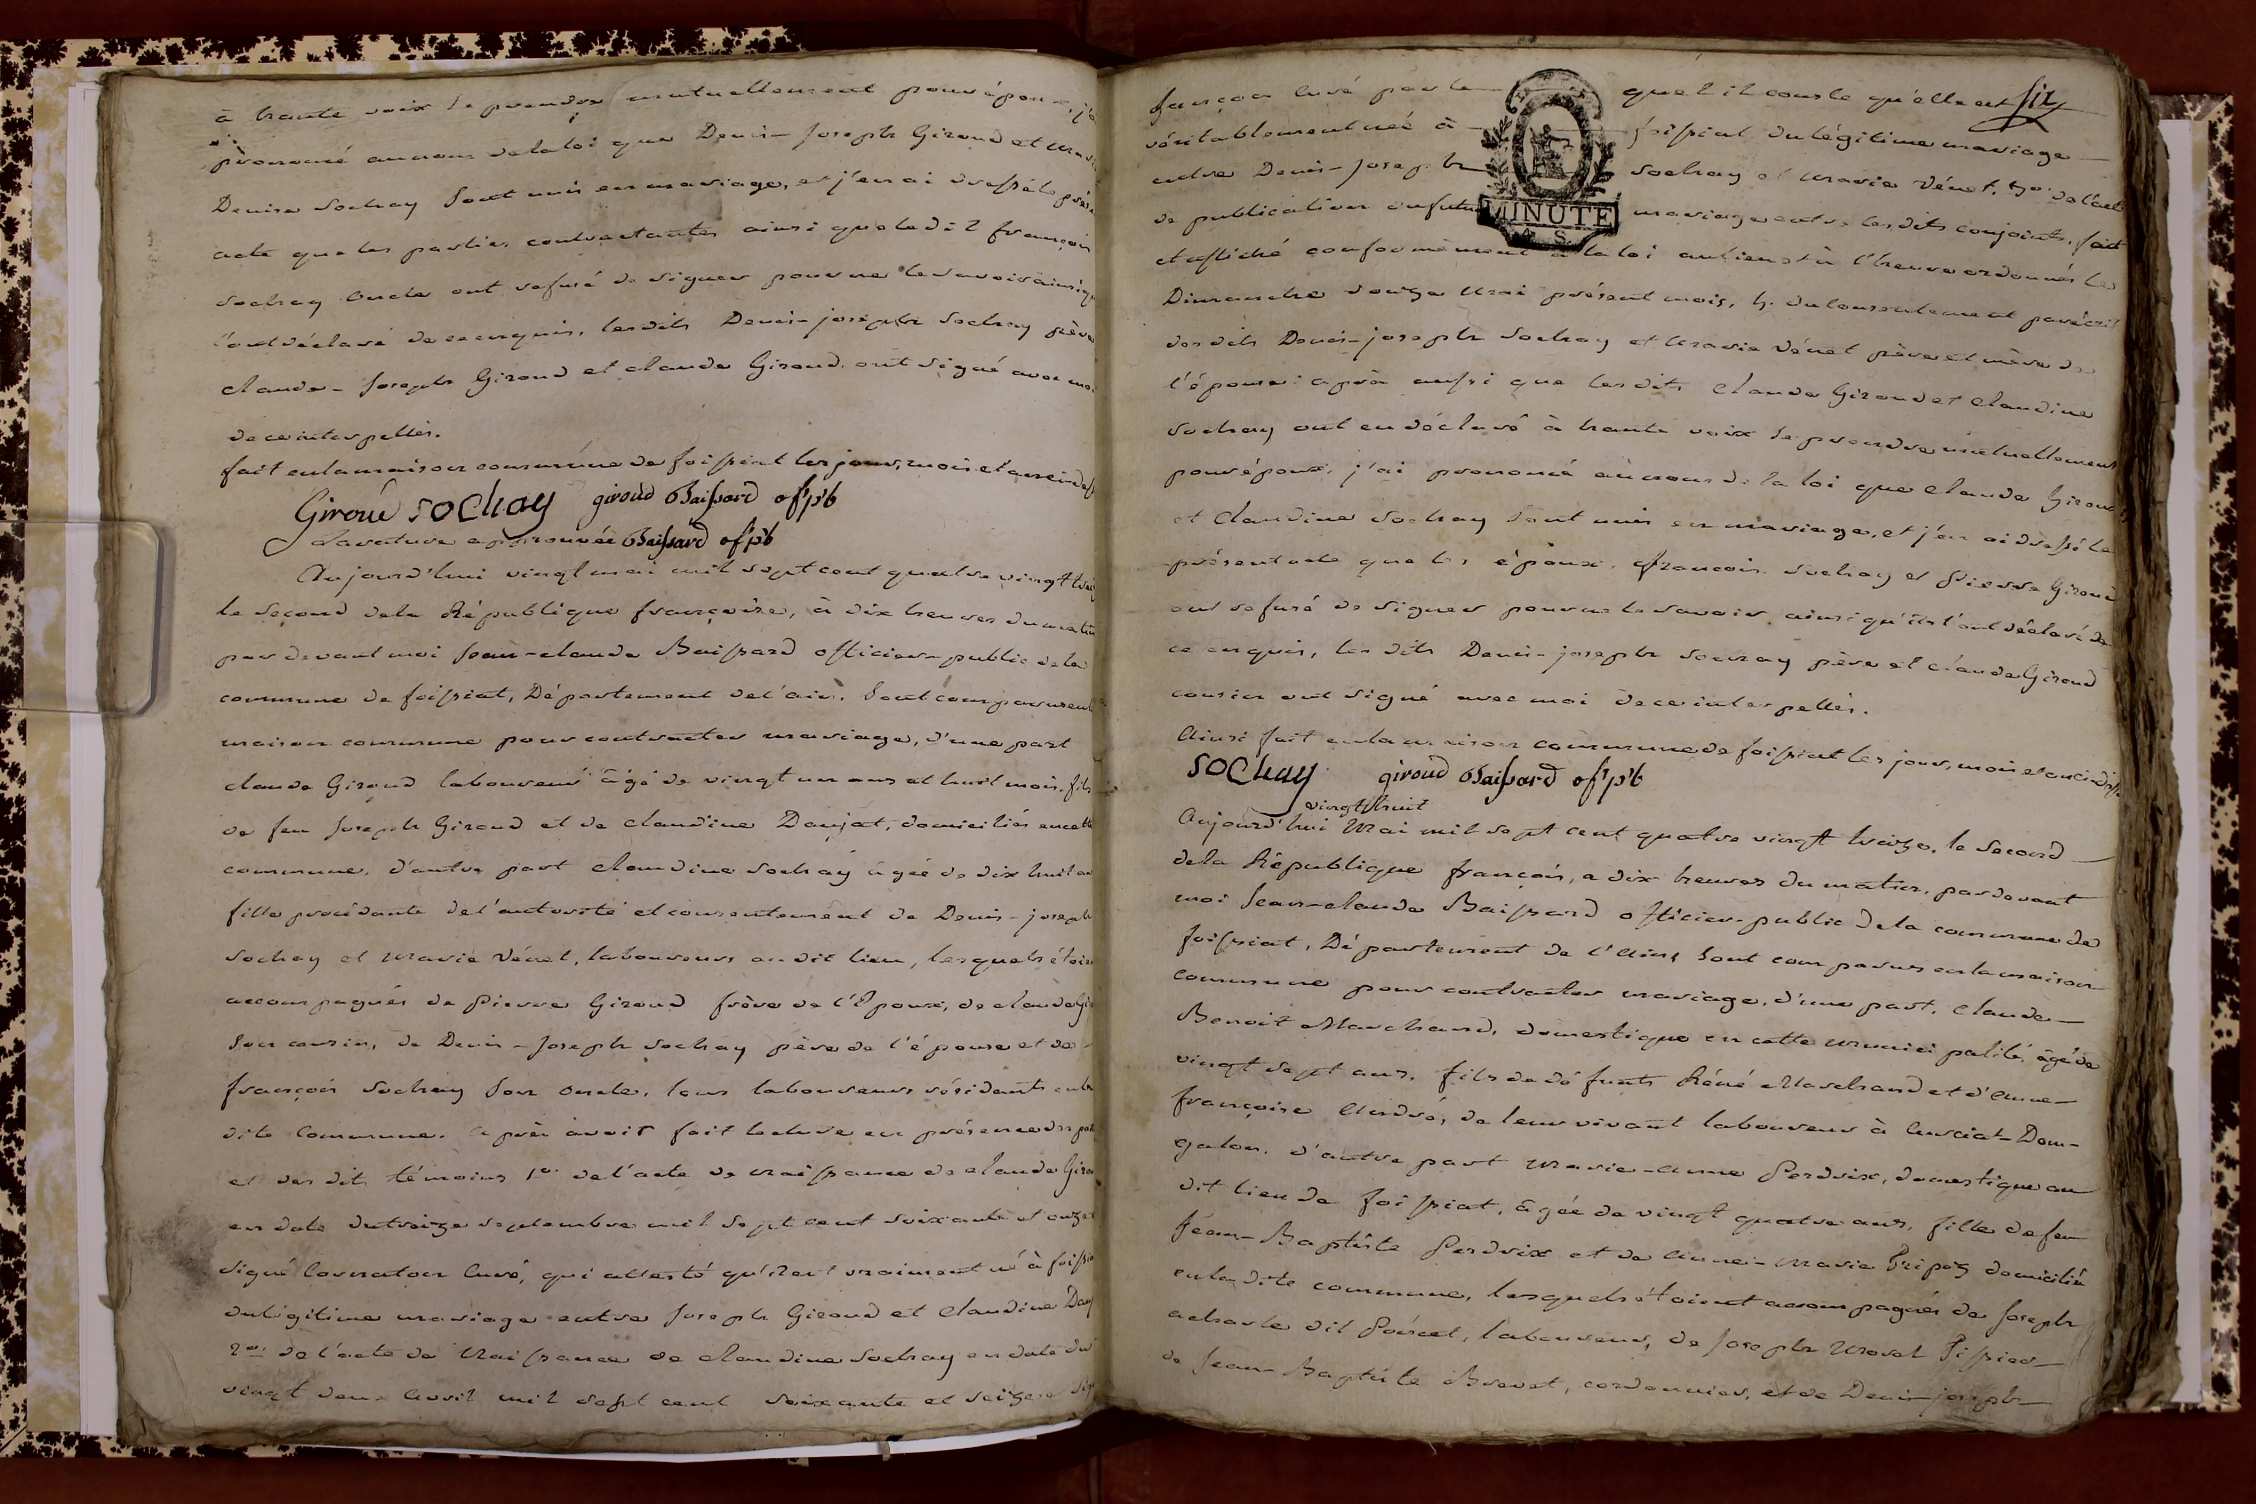 à haute voix se prendre mutuellement pour époux, j'ai
prononcé au nom de la loi que Denis-Joseph Giroud et Marie
Denise Sochay sont unis en mariage, et j'en ai dressé le prés
acte que les parties contractantes ainsi que ledit françois
Sochay oncle ont refusé de signer pour ne le savoir ainsi qu
l'ont déclaré de ce enquis, lesdits Denis-joseph Sochay père
claude-Joseph Giroud et claude Giroud, ont signé avec moi
de ce interpellés.
fait en la maison commune de foissiat les jour, mois et an ci-dess
Giroud SOChay giroud Baissard ofpb
la rature approuvée Baissard ofpb
Aujourd'hui vingt mai mil sept cent quatre vingt treiz
le second de la République françoise, à dix heures du matin
par devant moi Jean-claude Baissard officier-public de la
commune de foissiat, Département de l'ain, sont comparus en l
maison commune pour contracter mariage, d'une part
claude Giroud laboureur âgé de vingt un ans et huit mois, fils
de feu Joseph Giroud et de claudine Danjat, domiciliés en cette
commune, d'autre part claudine Sochay âgée de dix huit an
fille procédante de l'autorité et consentement de Denis-joseph
Sochay et Marie Vénet, laboureurs au dit lieu, lesquels étoien
accompagnés de Pierre Giroud frère de l'Epoux, de claude Gir
son cousin, de Denis-Joseph Sochay père de l'épouse et de
françois Sochay son oncle, tous laboureurs résidants en la
dite commune. après avoir fait lecture en présence des par
et des dits témoins 1o. de l'acte de Naissance de claude Giro
en date du treize septembre mil sept cent soixante et onze
signé Cournaton Curé, qui atteste qu'il est vraiment né à foissi
du légitime mariage entre Joseph Giroud et Claudine Danj
2o. de l'acte de Naissance de claudine Sochay en date du
vingt deux avril mil sept cent soixante et seize sign
six
françon curé par le quel il conste qu'elle est
véritablement née à foissiat du légitime mariage
entre Denis-Joseph Sochay et Marie Vénet. 3o. de l'acte
MINUTE
4 S.
de publication du futur mariage entre les dits conjoints, fait
et affiché conformément à la loi au lieu et à l'heure ordonnés le
Dimanche douze Mai présent mois, 4. du consentement par écrit
des dits Denis-joseph Sochay et Marie Vénet père et mère de
l'épouse: après aussi que les dits Claude Giroud et Claudine
Sochay ont eu déclaré à haute voix se prendre mutuellement
pour époux, j'ai prononcé au nom de la loi que Claude Giroud
et Claudine Sochay sont unis en mariage, et j'en ai dressé le
présent acte que les époux, françois Sochay et Pierre Giroud
ont refusé de signer pour ne le savoir, ainsi qu'ils l'ont déclaré de
ce enquis, les dits Denis-joseph Sochay père et claude Giroud
cousin ont signé avec moi de ce interpellés.
Ainsi fait en la maison commune de foissiat les jour, mois et an ci-dess
SOChay giroud Baissard ofpb
vingt huit
Aujourd'hui Mai mil sept cent quatre vingt treize, le second
de la République françois, à dix heures du matin, par devant
moi Jean-claude Baissard officier-public de la commune de
foissiat, Département de l'Ain, sont comparus en la maison
commune pour contracter mariage, d'une part, Claude-
Benoit Marchand, domestique en cette municipalité, âgé de
vingt sept ans, fils de défunts Réné Marchand et d'Anne-
françoise André, de leur vivant laboureurs à Curciat-Don-
galon, d'autre part Marie-Anne Perdrix, domestique au
dit lieu de foissiat, âgée de vingt quatre ans, fille de feu
Jean-Baptiste Perdrix et de Anne-Marie Pripoz domiciliée
en la dite commune, lesquels étoient accompagnés de Joseph
acharle dit Poircel, laboureur, de Joseph Morel Tissier
de Jean-Baptiste Brevet, cordonnier, et de Denis-joseph